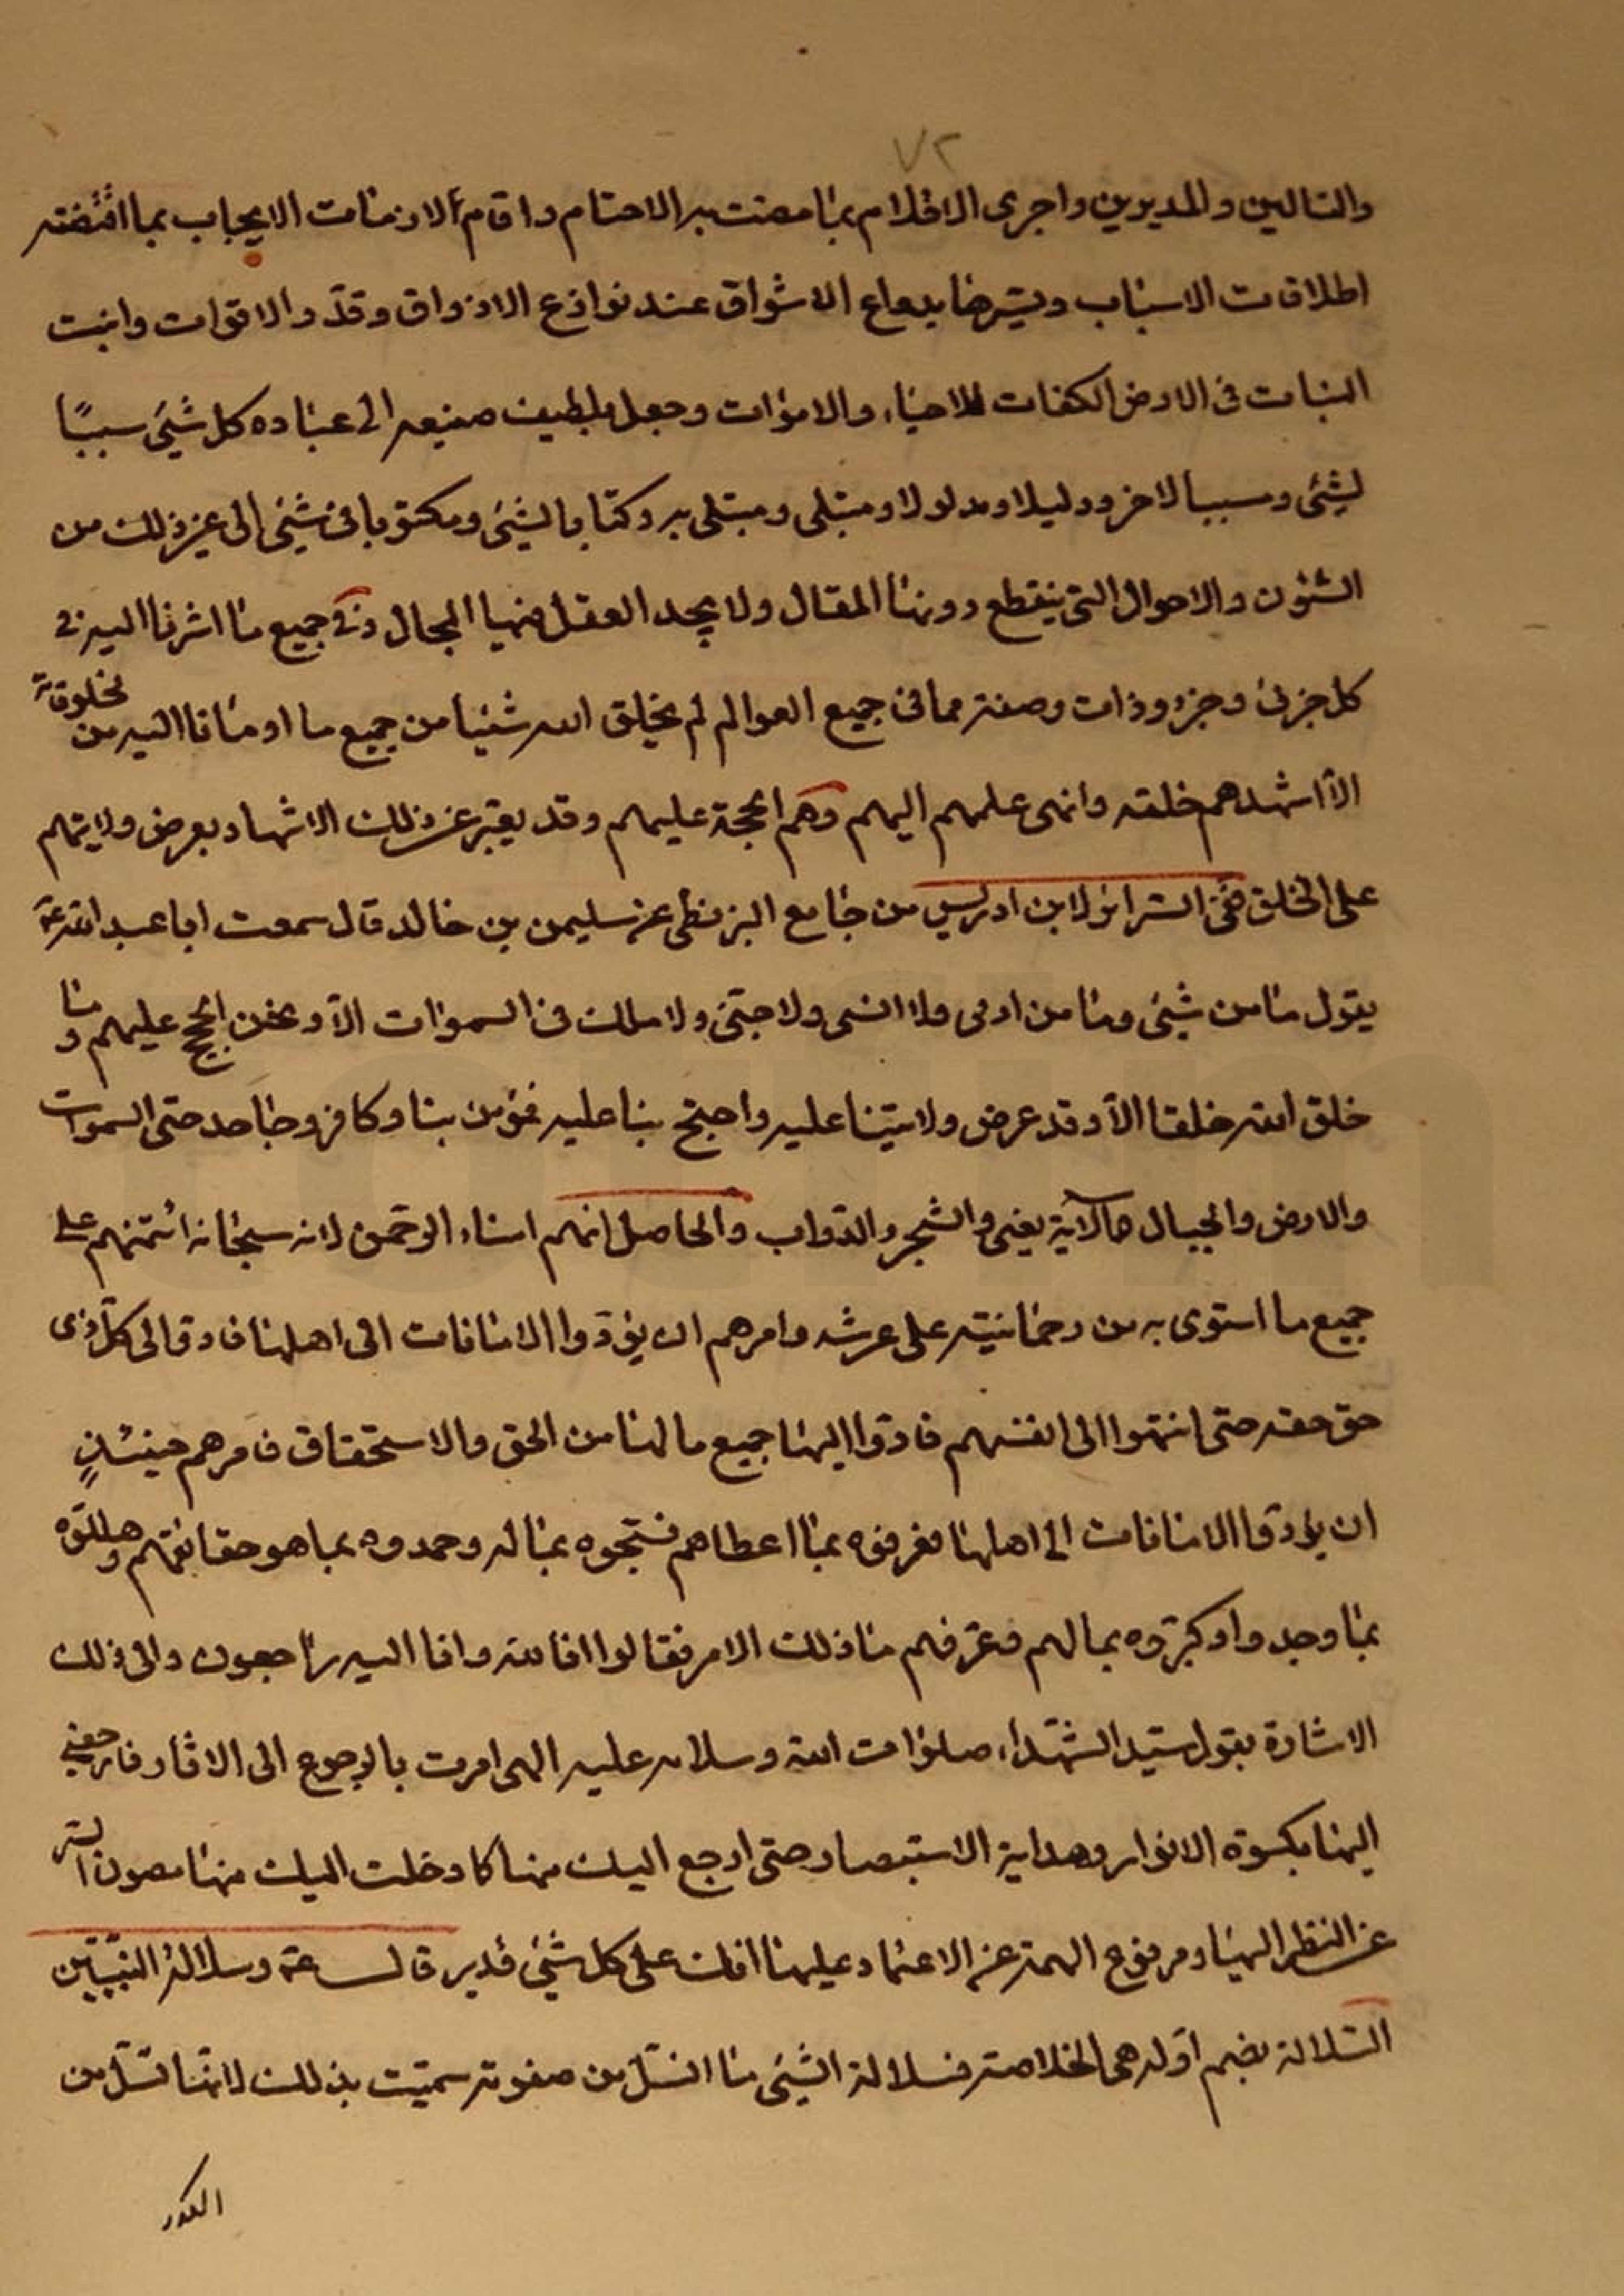 ٧٢
والتالين والمديرين واجرى الاقلام بما مضت به الاحتام واقام الاذمات الايجاب بما اقتضته
اطلاقات الاسباب ويسّرها بدواع الاشواق عند نوازع الاذواق وقدّر الاقوات وانبت
النبات فى الارض الكفات للاحياء والاموات وجعل بلطيف صنيعه الى عباده كل شيئ سببًا
لشيئ ومسببا لاخر ودليلا ومدلولا ومبتلى ومبتلى به وكتابا لشيئ ومكتوبا فى شيئ الى غير ذلك من
الشؤن والاحوال التى ينقطع دونها المقال ولا يجد العقل فيها المجال وفى جميع ما اشرنا اليه فى
كل جزئ وجزء وذات وصفة مما فى جميع العوالم لم يخلق الله شيئا من جميع ما اومانا اليه من مخلوقاته
الّا اشهدهم خلقه وانهى علمهم اليهم وهم الحجة عليهم وقد يعبّر عن ذلك الاشهاد بعرض ولايتهم
على الخلق ففى السرائر لابن ادريس من جامع البزنطى عن سليمن بن خالد قال سمعت ابا عبد الله ع
يقول ما من شيئ وما من ادمى ولا انسى ولا جنّى ولا ملك فى السموات الّا ونحن الحجج عليهم وما
خلق الله خلقا الّا وقد عرض ولايتنا عليه واحتج بنا عليه فمؤمن بنا وكافر وجاحد حتى السموات
والارض والجبال الآية يعنى والشجر والدّواب والحاصل انهم امناء الرحمن لانه سبحانه ائتمنهم على
جميع ما استوى به من رحمانيته على عرشه وامرهم ان يؤدّوا الامانات الى اهلها فادّوا الى كلّ ذى
حق حقه حتى انتهوا الى انفسهم فادّوا اليها جميع ما لها من الحق والاستحقاق فامرهم حينئذٍ
ان يؤدّوا الامانات الى اهلها فعرفوه بما اعطاهم فسبّحوه بما له وحمدوه بما هو حقا نفهم وهللّوه
بما وجدوا وكبّروه بما لهم فعرّفهم ما ذلك الامر فقالوا انا لله وانا اليه راجعون والى ذلك
الاشارة بقول سيّد الشهّداء صلوات الله وسلامه عليه الهى امرت بالرجوع الى الاثار فارجعنى
اليها بكسوة الانوار وهداية الاستبصار حتى ارجع اليك منها كما دخلت اليك منها مصون السّر
عن النظر اليها ومرفوع الهمة عن الاعتماد عليها انك على كل شيئ قدير قال ع وسلالة النبيّين
السّلالة بضم اوّله هى الخلاصة فسلالة الشيئ ما انسّل من صفوته سمّيت بذلك لانّها تسّل من
الكدر